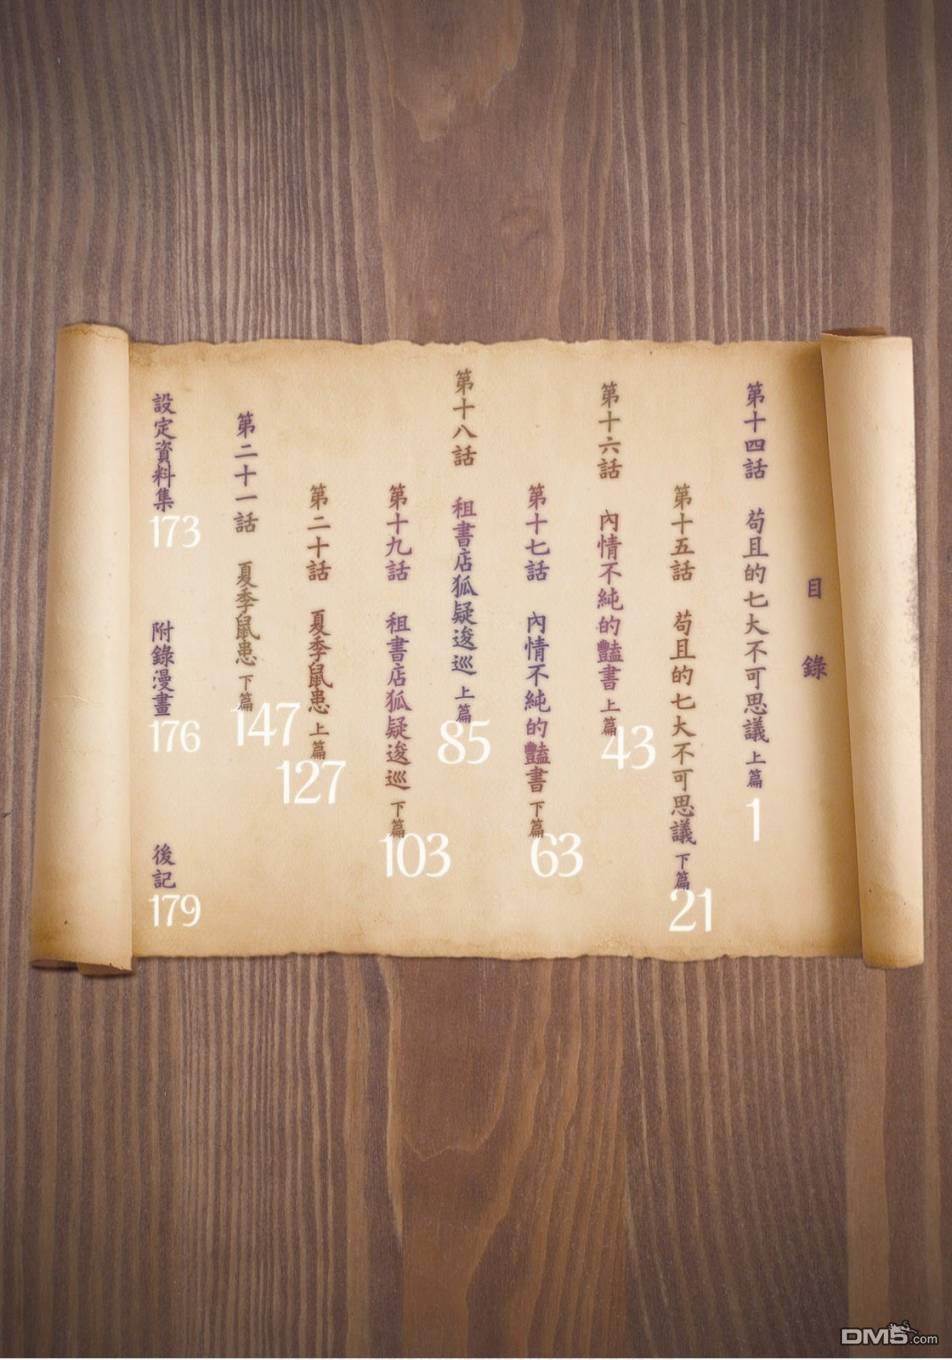 目錄
第十四話 苟且的七大不可思議 上篇 1
第十五話 苟且的七大不可思議 下篇 21
第十六話 內情不純的豔書 上篇 43
第十七話 內情不純的豔書 下篇 63
第十八話 租書店狐疑逡巡 上篇 85
第十九話 租書店狐疑逡巡 下篇 103
第二十話 夏季鼠患 上篇 127
第二十一話 夏季鼠患 下篇 147
設定資料集 173
附錄漫畫 176
後記 179
DM5.com